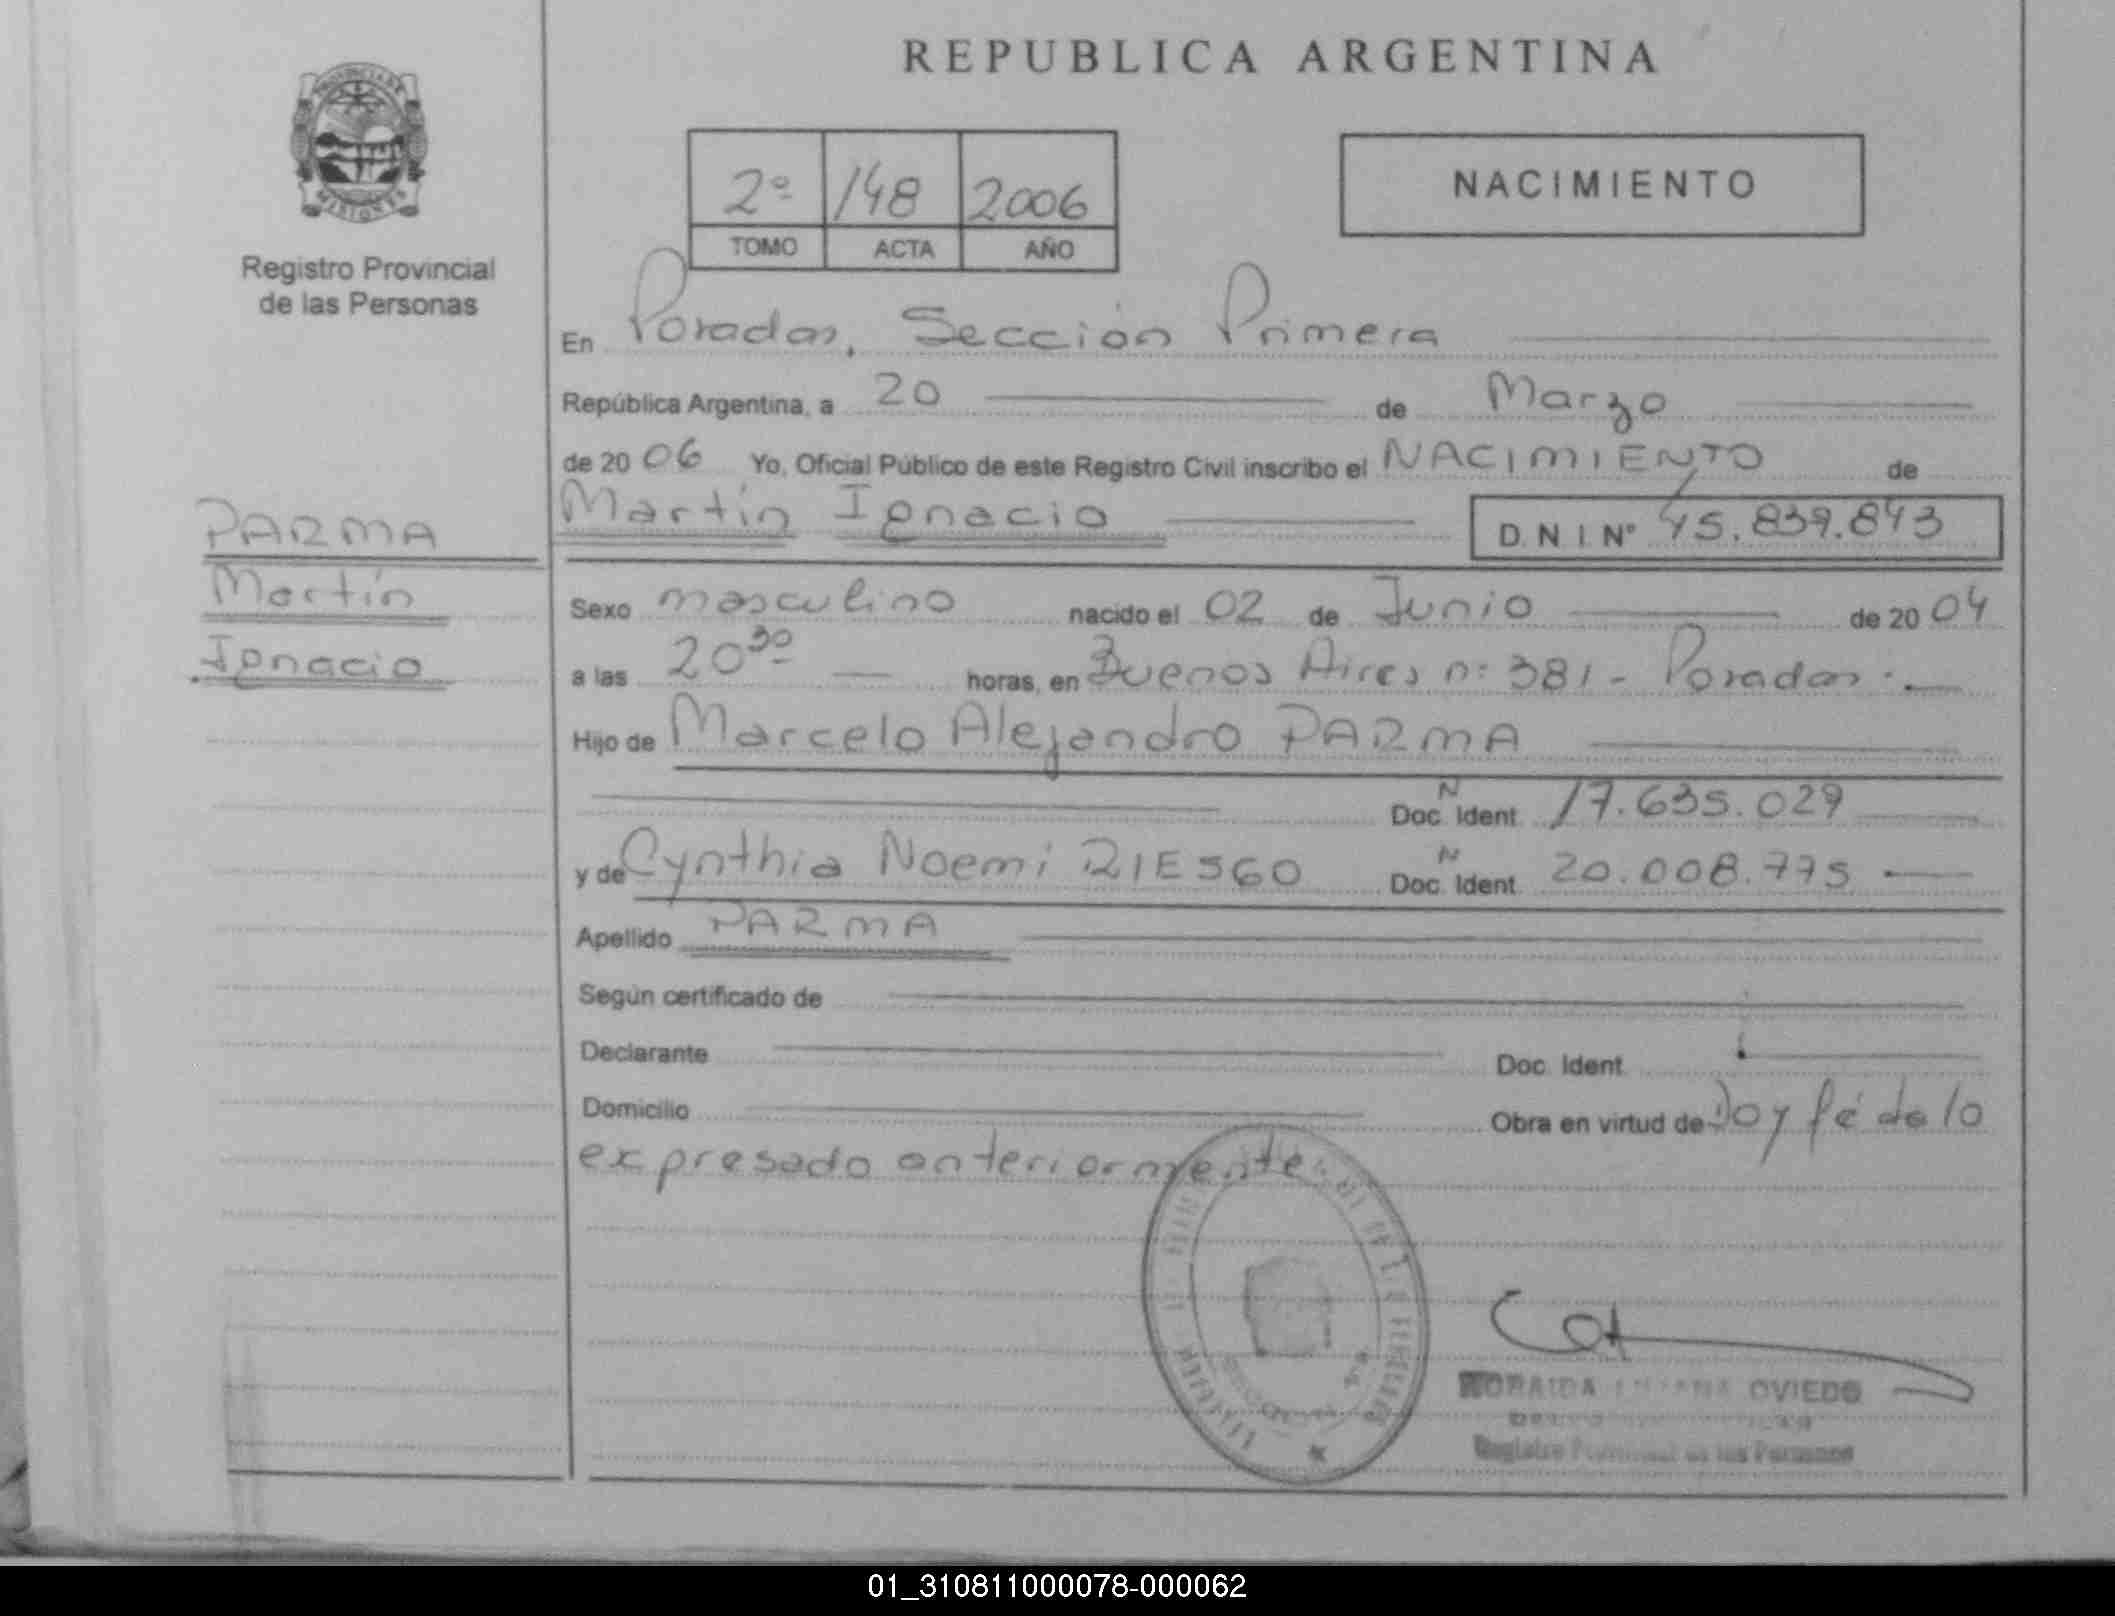 REPUBLICA ARGENTINA
PROVINCIA DE
MISIONES
Registro Provincial
de las Personas
2º 148 2006
TOMO ACTA AÑO
NACIMIENTO
En Posadas, Sección Primera
República Argentina, a 20 de Marzo
de 2006 Yo, Oficial Público de este Registro Civil inscribo el NACIMIENTO de
Martín Ignacio D.N.I. Nº 45.839.843
PARMA
Martín
Ignacio
Sexo masculino nacido el 02 de Junio de 2004
a las 20³⁰ horas, en Buenos Aires nº 381 - Posadas.
Hijo de Marcelo Alejandro PARMA
N
Doc. Ident. 17.635.029
N
y de Cynthia Noemi RIESGO Doc. Ident. 20.008.775
Apellido PARMA
Según certificado de
Declarante Doc. Ident.
Domicilio Obra en virtud de Doy fé de lo
expresado anteriormente.
OVIEDO
Registro Provincial de las Personas
01_310811000078-000062